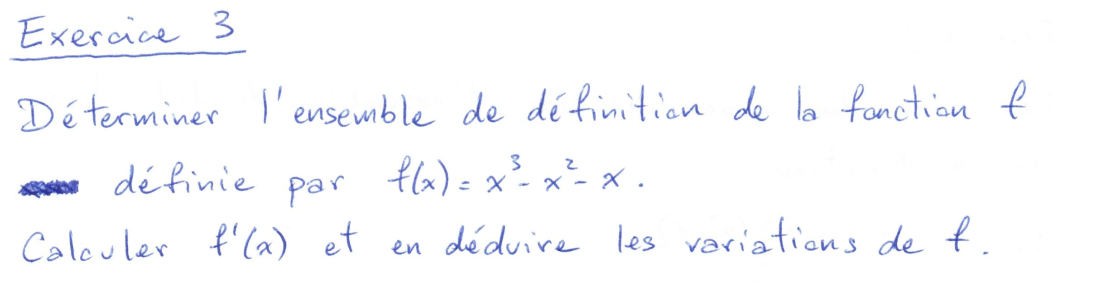 Exercice 3
Déterminer l'ensemble de définition de la fonction f
définie par f(x) = x³ - x² - x.
Calculer f'(x) et en déduire les variations de f.